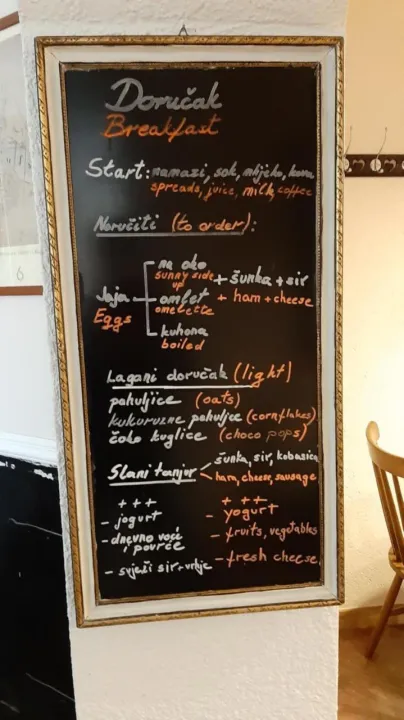 Doručak
Breakfast
Start: namazi, sok, mlijeko, kava
spreads, juice, milk, coffee
Naručiti (to order):
na oko
sunny side
up
+ šunka + sir
Jaja
Eggs
omlet
omelette
+ ham + cheese
kuhana
boiled
Lagani doručak (light)
pahuljice (oats)
kukuruzne pahuljice (cornflakes)
čoko kuglice (choco pops)
Slani tanjur
šunka, sir, kobasica
ham, cheese, sausage
+ + +
- jogurt
- dnevno voće
, povrće
- svježi sir-vrhnje
+ + +
- yogurt
- fruits, vegetables
- fresh cheese